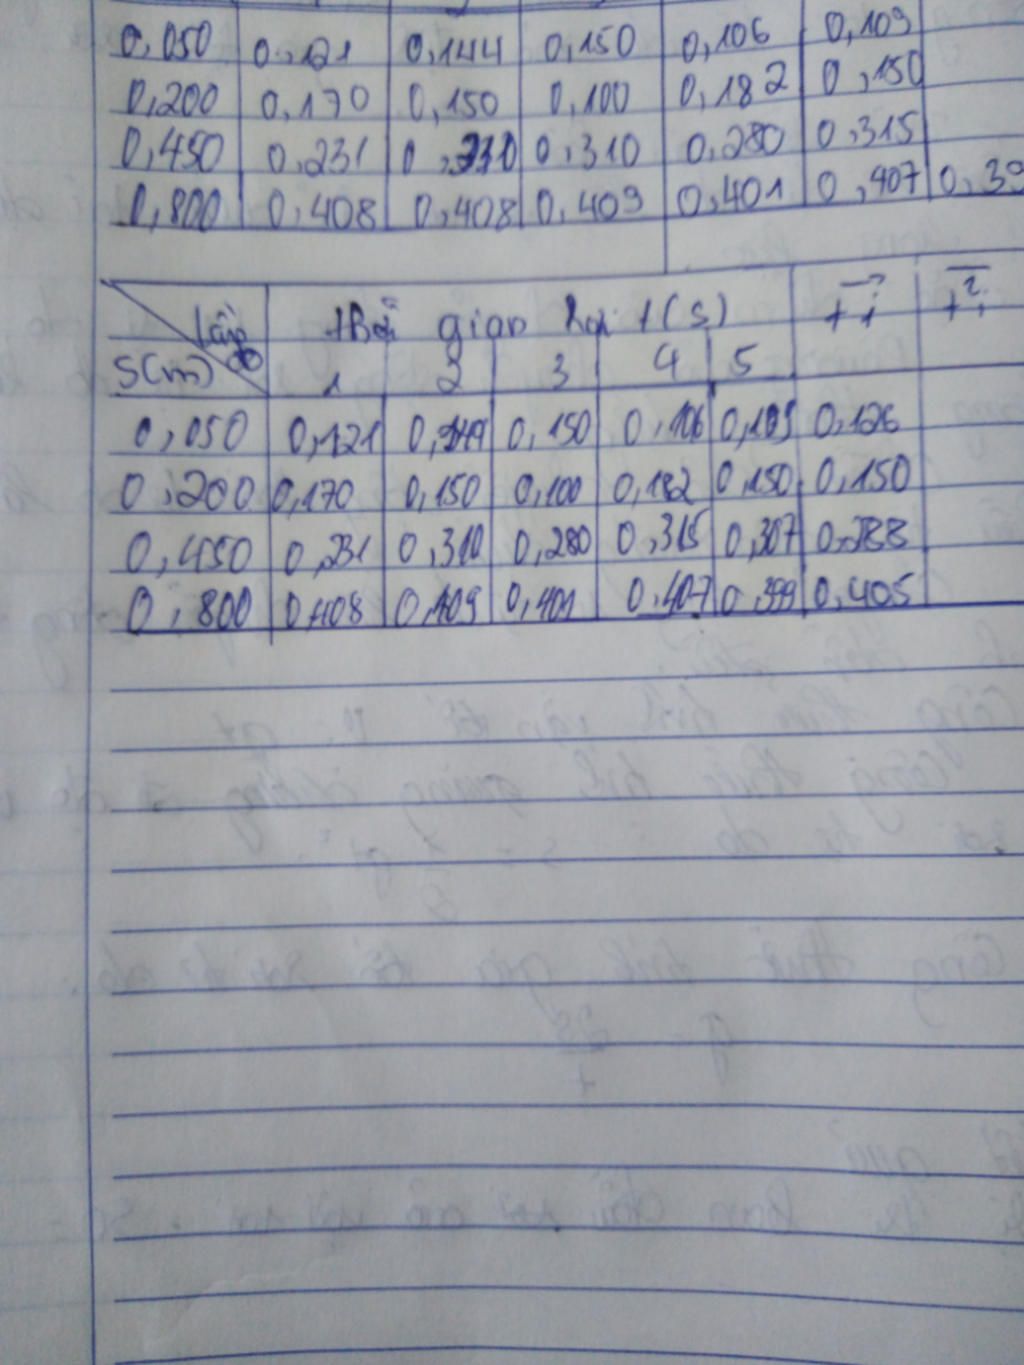 0,050 0,121 0,144 0,150 0,106 0,109
0,200 0,170 0,150 0,100 0,182 0,150
0,450 0,231 0,310 0,310 0,280 0,315
0,800 0,408 0,408 0,409 0,401 0,407 0,39
Lần đo Thời gian rơi t(s) ti ti²
S(m) 1 2 3 4 5
0,050 0,121 0,150 0,106 0,109 0,126
0,200 0,170 0,150 0,100 0,182 0,150 0,150
0,450 0,231 0,310 0,280 0,315 0,307 0,288
0,800 0,408 0,409 0,401 0,407 0,399 0,405